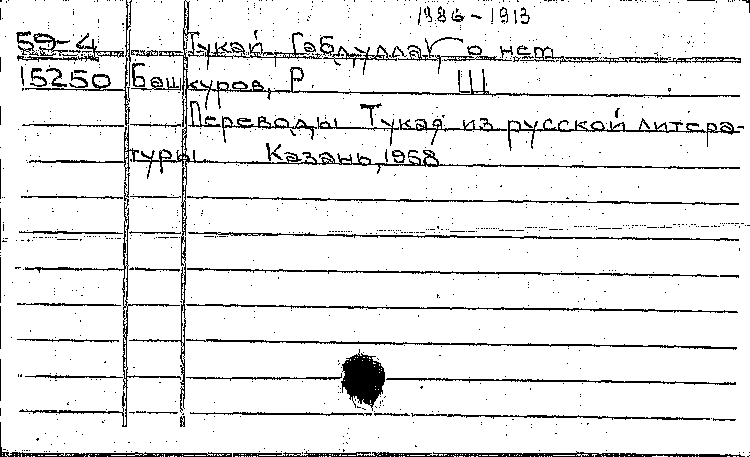 1886-1913
59-4 Тукай, Габдулла, о нем
15250 Башкуров, Р. Ш
Переводы Тукая из русской литера-
туры. Казань, 1958